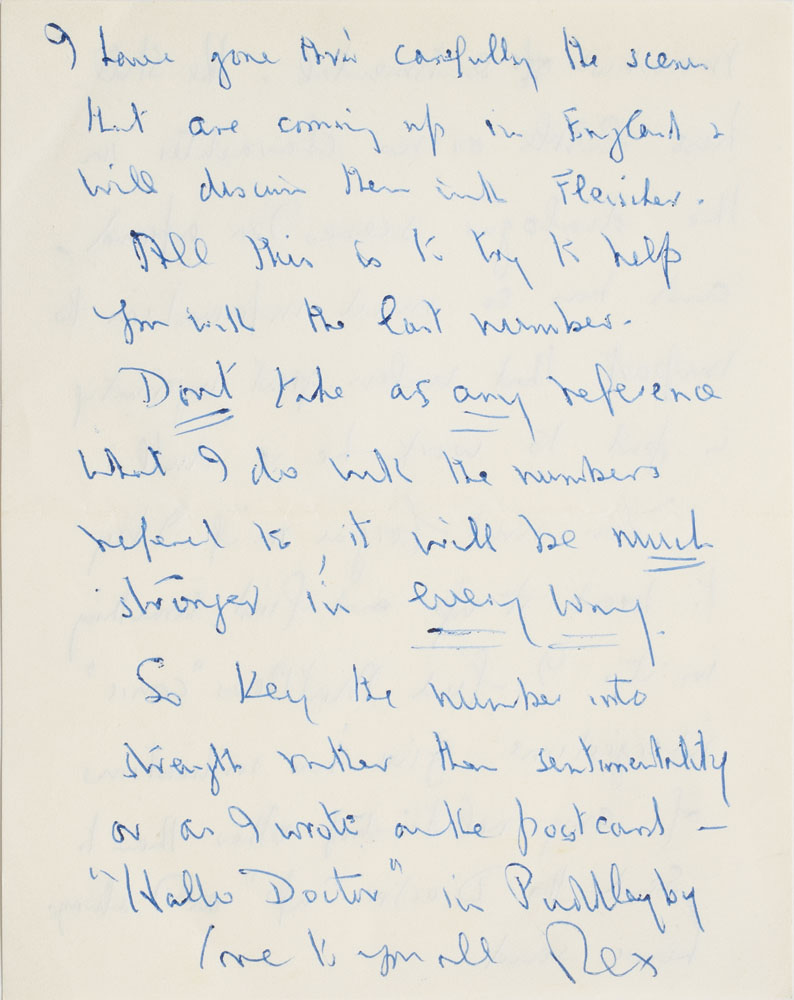 I have gone thro' carefully the scenes
that are coming up in England &
will discuss them with Fleischer.
All this is to try to help
you with the last number.
Don't take as any reference
what I do with the numbers
referred to, it will be much
stronger in every way.
So Key the number into
strength rather then sentimentality
or as I wrote on the postcard –
"Hallo Doctor" in Puddleby
love to you all Rex